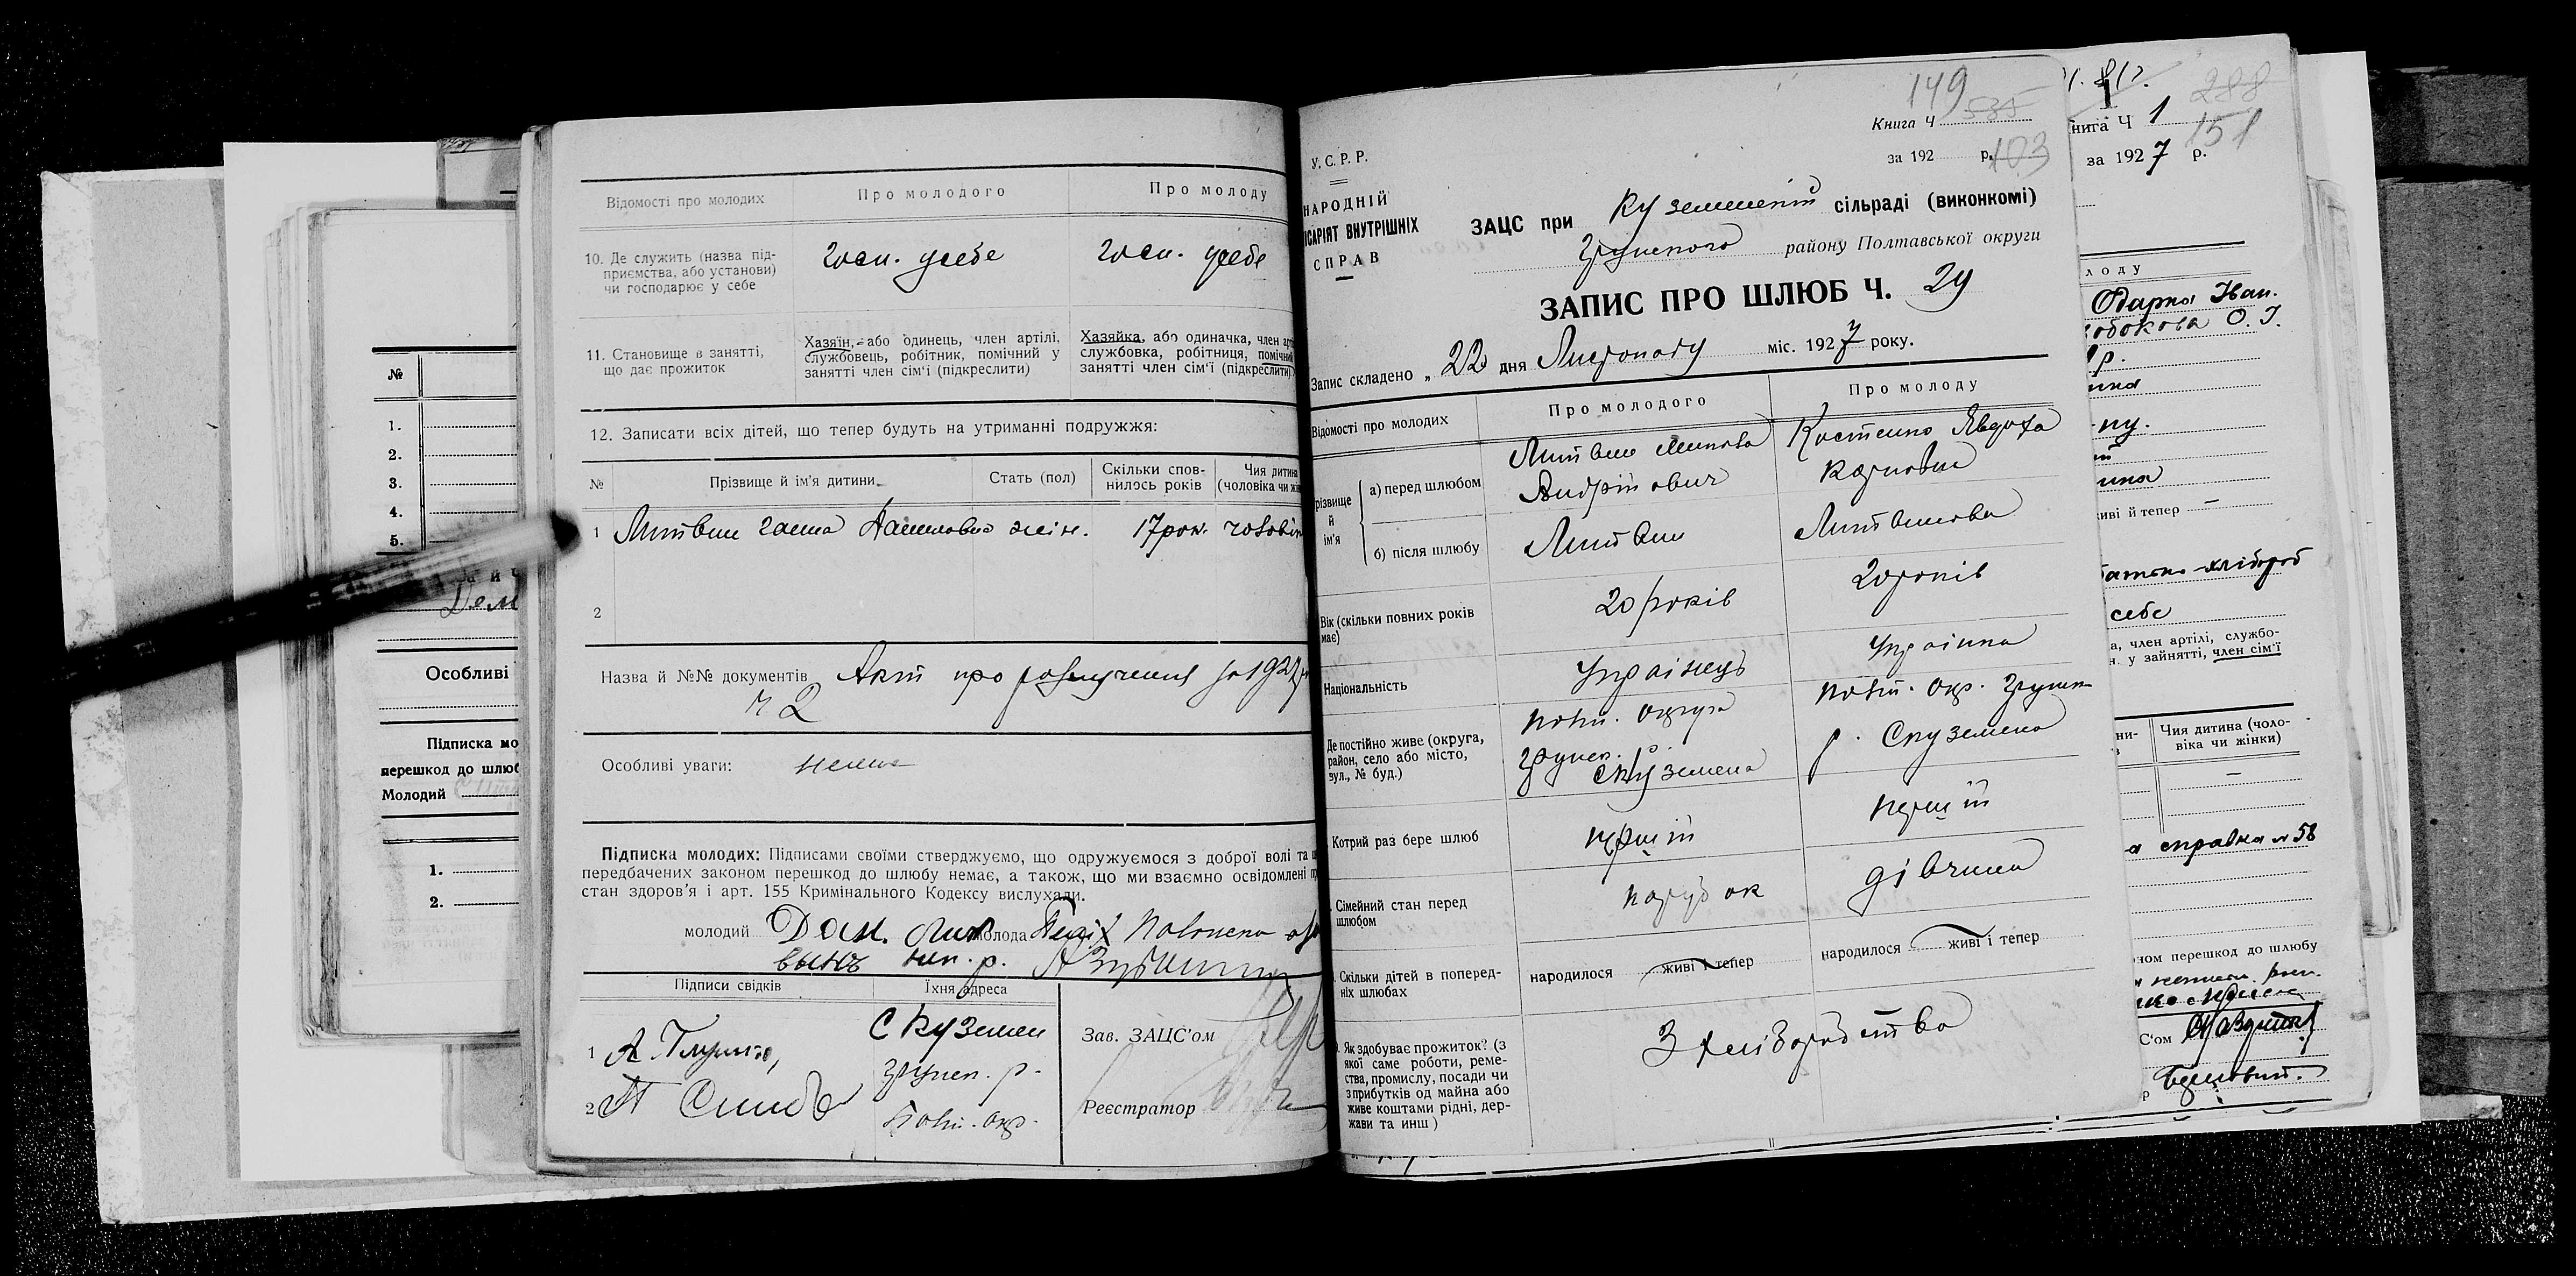 Відомості про молодих
Про молодого
Про молоду
10. Де служить (назва під-
приємства, або установи)
чи господарює у себе
госп. усебе
госп. усебе
11. Становище в занятті,
що дає прожиток
Хазяїн, або одинець, член артілі,
службовець, робітник, помічний у
занятті член сім'ї (підкреслити)
Хазяйка, або одиначка, член
службовка, робітниця, помічна
занятті член сім'ї (підкреслити)
12. Записати всіх дітей, що тепер будуть на утриманні подружжя:
№
Прізвище й ім'я дитини
Стать (пол)
Скільки спов-
нилось років
Чия дитина
(чоловіка чи
1 Литвин Данилова жін. 17 рок.
2
Назва й №№ документів Акт про розлучення за 1927
ч 2
Особливі уваги: нема
Підписка молодих: Підписами своїми стверджуємо, що одружуємося з доброї волі та
передбачених законом перешкод до шлюбу немає, а також, що ми взаємно освідомлені
стан здоров'я і арт. 155 Кримінального Кодексу вислухали.
молодий Дан. Лит молода
вынъ
Підписи свідків
Їхня адреса
1 А.
с Куземен
Грунск. р.
2
Полт. окр.
Зав. ЗАЦС'ом
Реєстратор
№
1.
2.
3.
4.
5.
Особливі
Підписка мо
перешкод до шлюб
Молодий
1.
2.
149
535
Книга Ч
за 192 р.
103
У.С.Р.Р.
НАРОДНІЙ
ІСАРІЯТ ВНУТРІШНІХ
СПРАВ
ЗАЦС при Куземенській сільраді (виконкомі)
Грунського району Полтавської округи
ЗАПИС ПРО ШЛЮБ Ч. 24
Запис складено „ 22 дня Листопаду міс. 1927 року.
Відомості про молодих
Про молодого
Про молоду
різвище
й
ім'я
а) перед шлюбом
Литвин Микола
Андрійович
Костенко Явдоха
Карповна
б) після шлюбу
Литвин
Литвинова
Вік (скільки повних років
має)
20 років
20 років
Національність
Українець
Українка
Де постійно живе (округа,
район, село або місто,
вул., № буд.)
Полт. округа
Грунск. р.
с Куземена
Полт. окр. Грунск
р. с Куземена
Котрий раз бере шлюб
перший
перший
Сімейний стан перед
шлюбом
парубок
дівчина
Скільки дітей в поперед-
ніх шлюбах
народилося живі і тепер
народилося живі і тепер
Як здобуває прожиток? (з
якої саме роботи, реме-
ства, промислу, посади чи
з прибутків од майна або
живе коштами рідні, дер-
жави та инш)
З хліборобства
288
нига Ч 1
151
за 1927 р.
лоду
Одарка Іван.
О. І.
р.
иві й тепер —
хлібороб
себе
а, член артілі, службо-
н. у зайнятті, член сім'ї
Чия дитина (чоло-
віка чи жінки)
—
а справка № 58
ном перешкод до шлюбу
С'ом